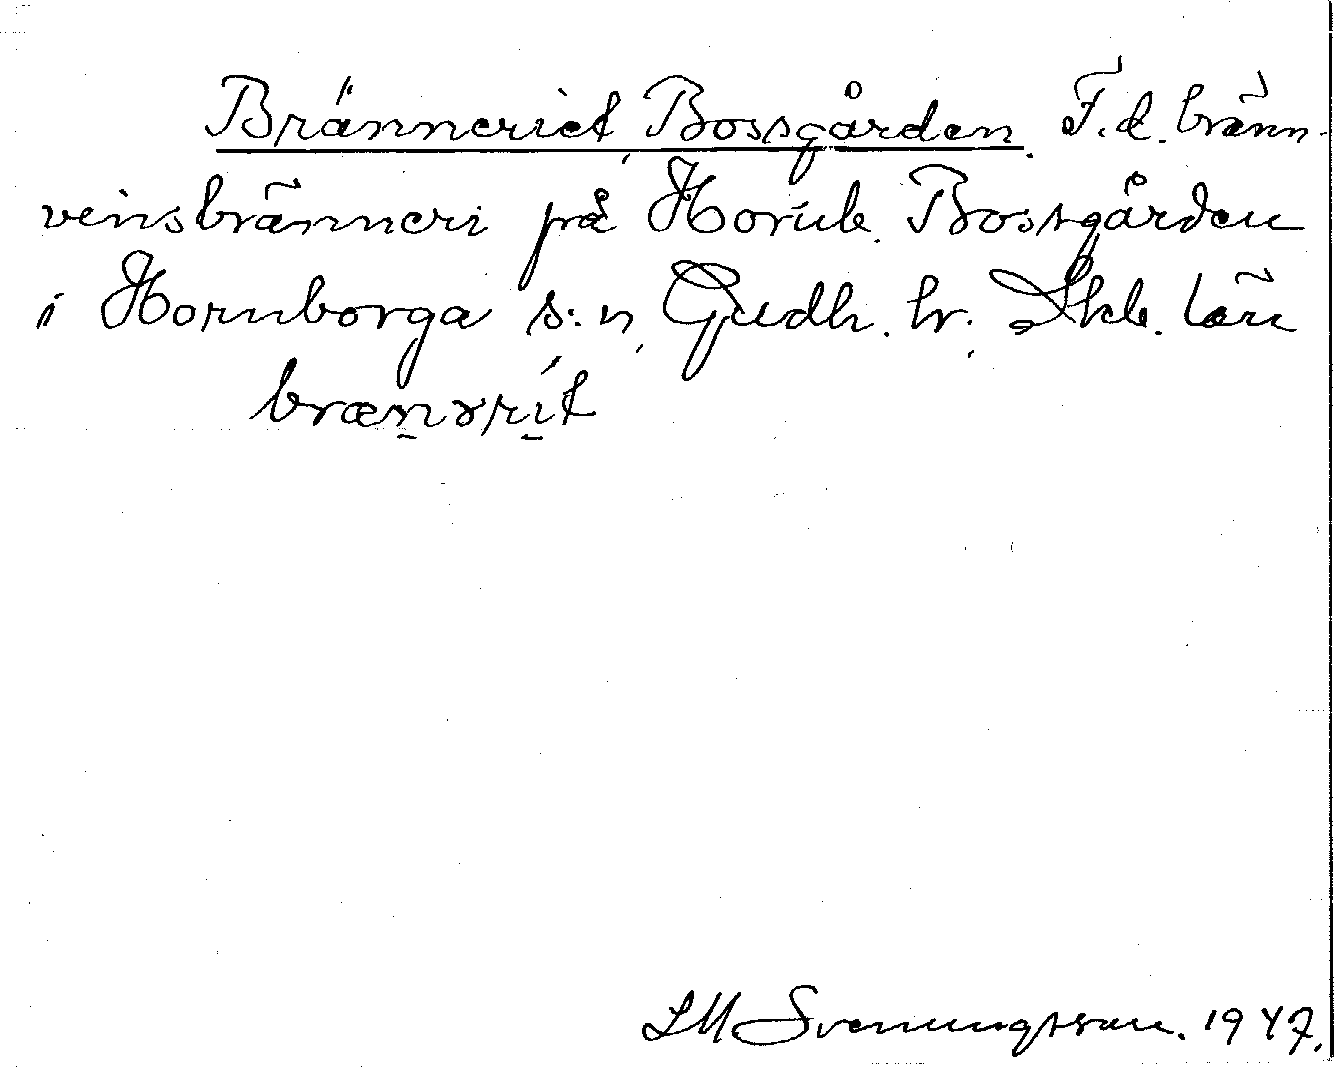 Bränneriet, Bossgården. F.d. bränn-
vinsbränneri på Hornb. Bossgården
i Hornborga s:n, Gudh. hr, Skb. län
brænɤrit
LM Svenungsson. 1947.